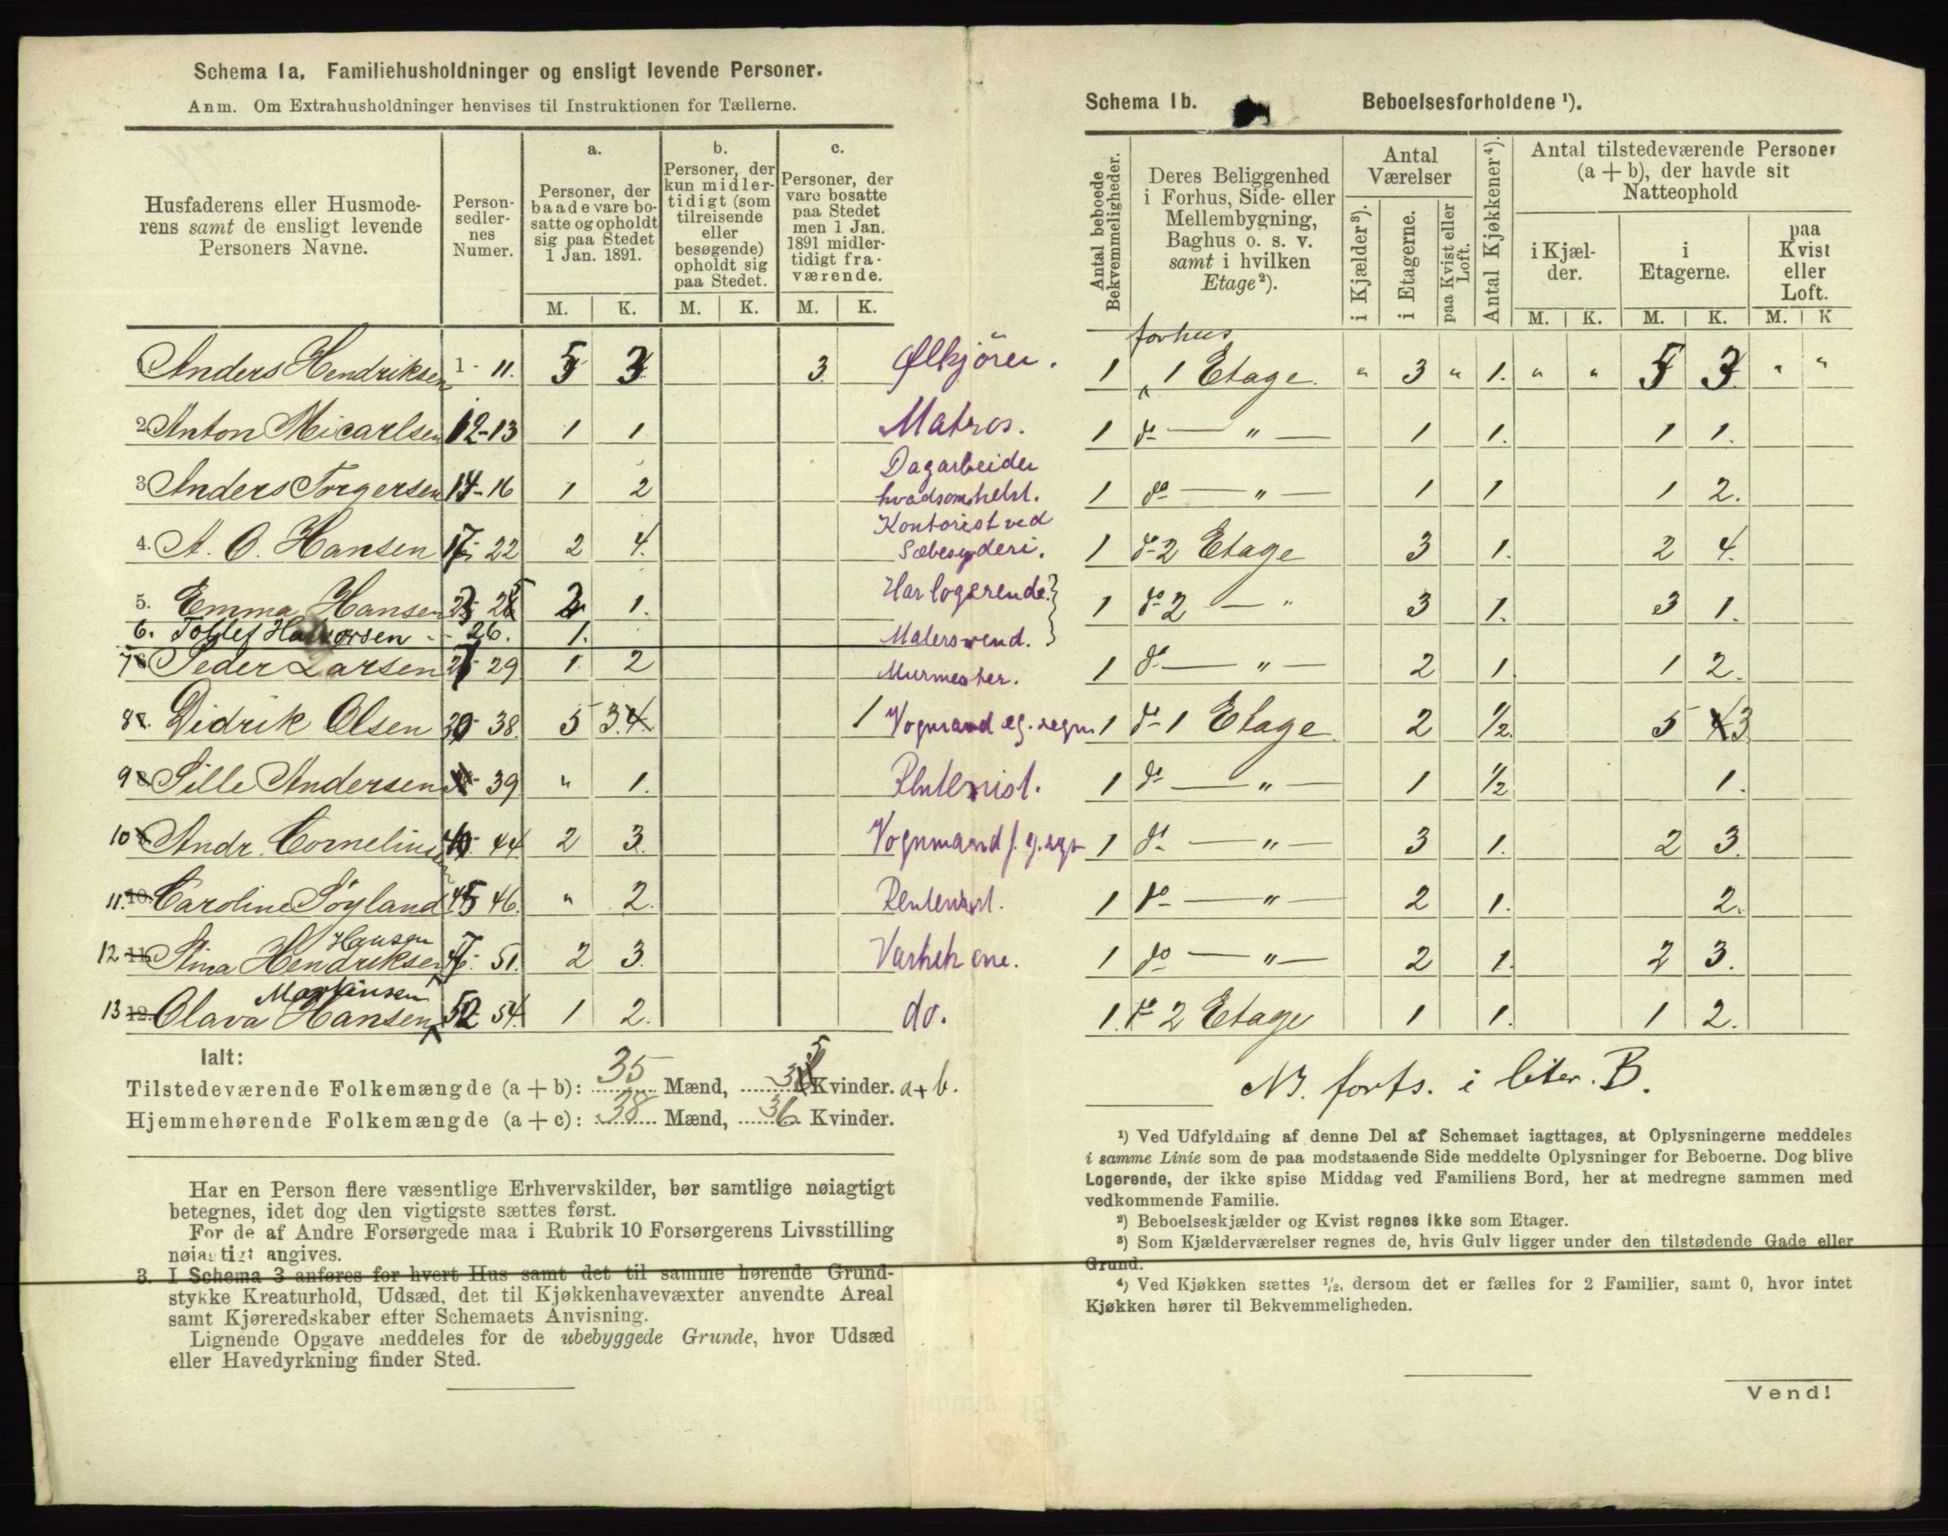 Schema 1a. Familiehusholdninger og ensligt levende Personer.
Anm. Om Extrahusholdninger henvises til Instruktionen for Tællerne.
Husfaderens eller Husmoderens samt de ensligt levende Personers Navne.
Personsedlernes Numer.
a. Personer, der baade vare bosatte og opholdt sig paa Stedet 1 Jan. 1891.
b. Personer, der kun midlertidigt (som tilreisende eller besøgende) opholdt sig paa Stedet.
c. Personer, der vare bosatte paa Stedet men 1 Jan. 1891 midlertidigt fraværende.
M. K. M. K. M. K.
Anders Hendriksen 1 - 11. 5 3 3. Ølkjörer.
2 Anton Micarlsen 12-13 1 1. Matros.
3 Anders Torgersen 14-16 1 2 Dagarbeider hvadsomhelst.
4. A. O. Hansen 17- 22 2 4. Kontorist ved Sæbesyderi.
5. Emma Hansen 23 25 2 1. Har logerende.
6. Tollef - 26. 1. Malersvend.
7 Peder Larsen 27 29 1. 2 Murmester.
8 Didrik Olsen 30 38. 5 3 4. 1 Vognmand eg. regn
9 Sille Andersen 39 " 1. Rentenist.
10 Andr. Corneliussen 40 44 2 3. Vognmand f. eg. regn
11. 10. Caroline Söyland 45 46. " 2. Rentenist.
12 11. Stina Hendriksen Hansen 47- 51. 2 3. Vaskekone.
13 12. Olava Hansen Martinsen 52 54. 1 2. do.
Ialt:
Tilstedeværende Folkemængde (a + b): 35 Mænd, 35 Kvinder. a + b.
Hjemmehørende Folkemængde (a + c): 38 Mænd, 36 Kvinder.
Har en Person flere væsentlige Erhvervskilder, bør samtlige nøiagtigt
betegnes, idet dog den vigtigste sættes først.
For de af Andre Forsørgede maa i Rubrik 10 Forsørgerens Livsstilling
nøiagtigt angives.
3. I Schema 3 anføres for hvert Hus samt det til samme hørende Grund-
stykke Kreaturhold, Udsæd, det til Kjøkkenhavevæxter anvendte Areal
samt Kjøreredskaber efter Schemaets Anvisning.
Lignende Opgave meddeles for de ubebyggede Grunde, hvor Udsæd
eller Havedyrkning finder Sted.
Schema 1b. Beboelsesforholdene ¹).
Antal beboede Bekvemmeligheder.
Deres Beliggenhed i Forhus, Side- eller Mellembygning, Baghus o. s. v. samt i hvilken Etage ²).
Antal Værelser
i Kjælder ³).
i Etagerne.
paa Kvist eller Loft.
Antal Kjøkkener ⁴).
Antal tilstedeværende Personer (a + b), der havde sit Natteophold
i Kjælder.
i Etagerne.
paa Kvist eller Loft.
M. K. M. K. M. K
forhus
1 1 Etage. " 3 " 1. " " 5 3 " "
1 do — " — 1 1. 1 1.
1 do — " — 1 1 1 2.
1 do 2 Etage 3 1. 2 4.
1 do 2 — " 3 1. 3 1.
1 do — " — 2 1. 1 2.
1 do 1 Etage 2 1/2. 5 4 3
1 do — " — 1 1/2 1.
1 do — " — 3 1. 2 3.
1 do — " — 2 1. 2.
1 do — " — 2 1. 2 3.
1. do 2 Etage 1 1. 1 2.
NB. forts. i liter. B.
¹) Ved Udfyldning af denne Del af Schemaet iagttages, at Oplysningerne meddeles
i samme Linie som de paa modstaaende Side meddelte Oplysninger for Beboerne. Dog blive
Logerende, der ikke spise Middag ved Familiens Bord, her at medregne sammen med
vedkommende Familie.
²) Beboelseskjælder og Kvist regnes ikke som Etager.
³) Som Kjælderværelser regnes de, hvis Gulv ligger under den tilstødende Gade eller
Grund.
⁴) Ved Kjøkken sættes ½, dersom det er fælles for 2 Familier, samt 0, hvor intet
Kjøkken hører til Bekvemmeligheden.
Vend!